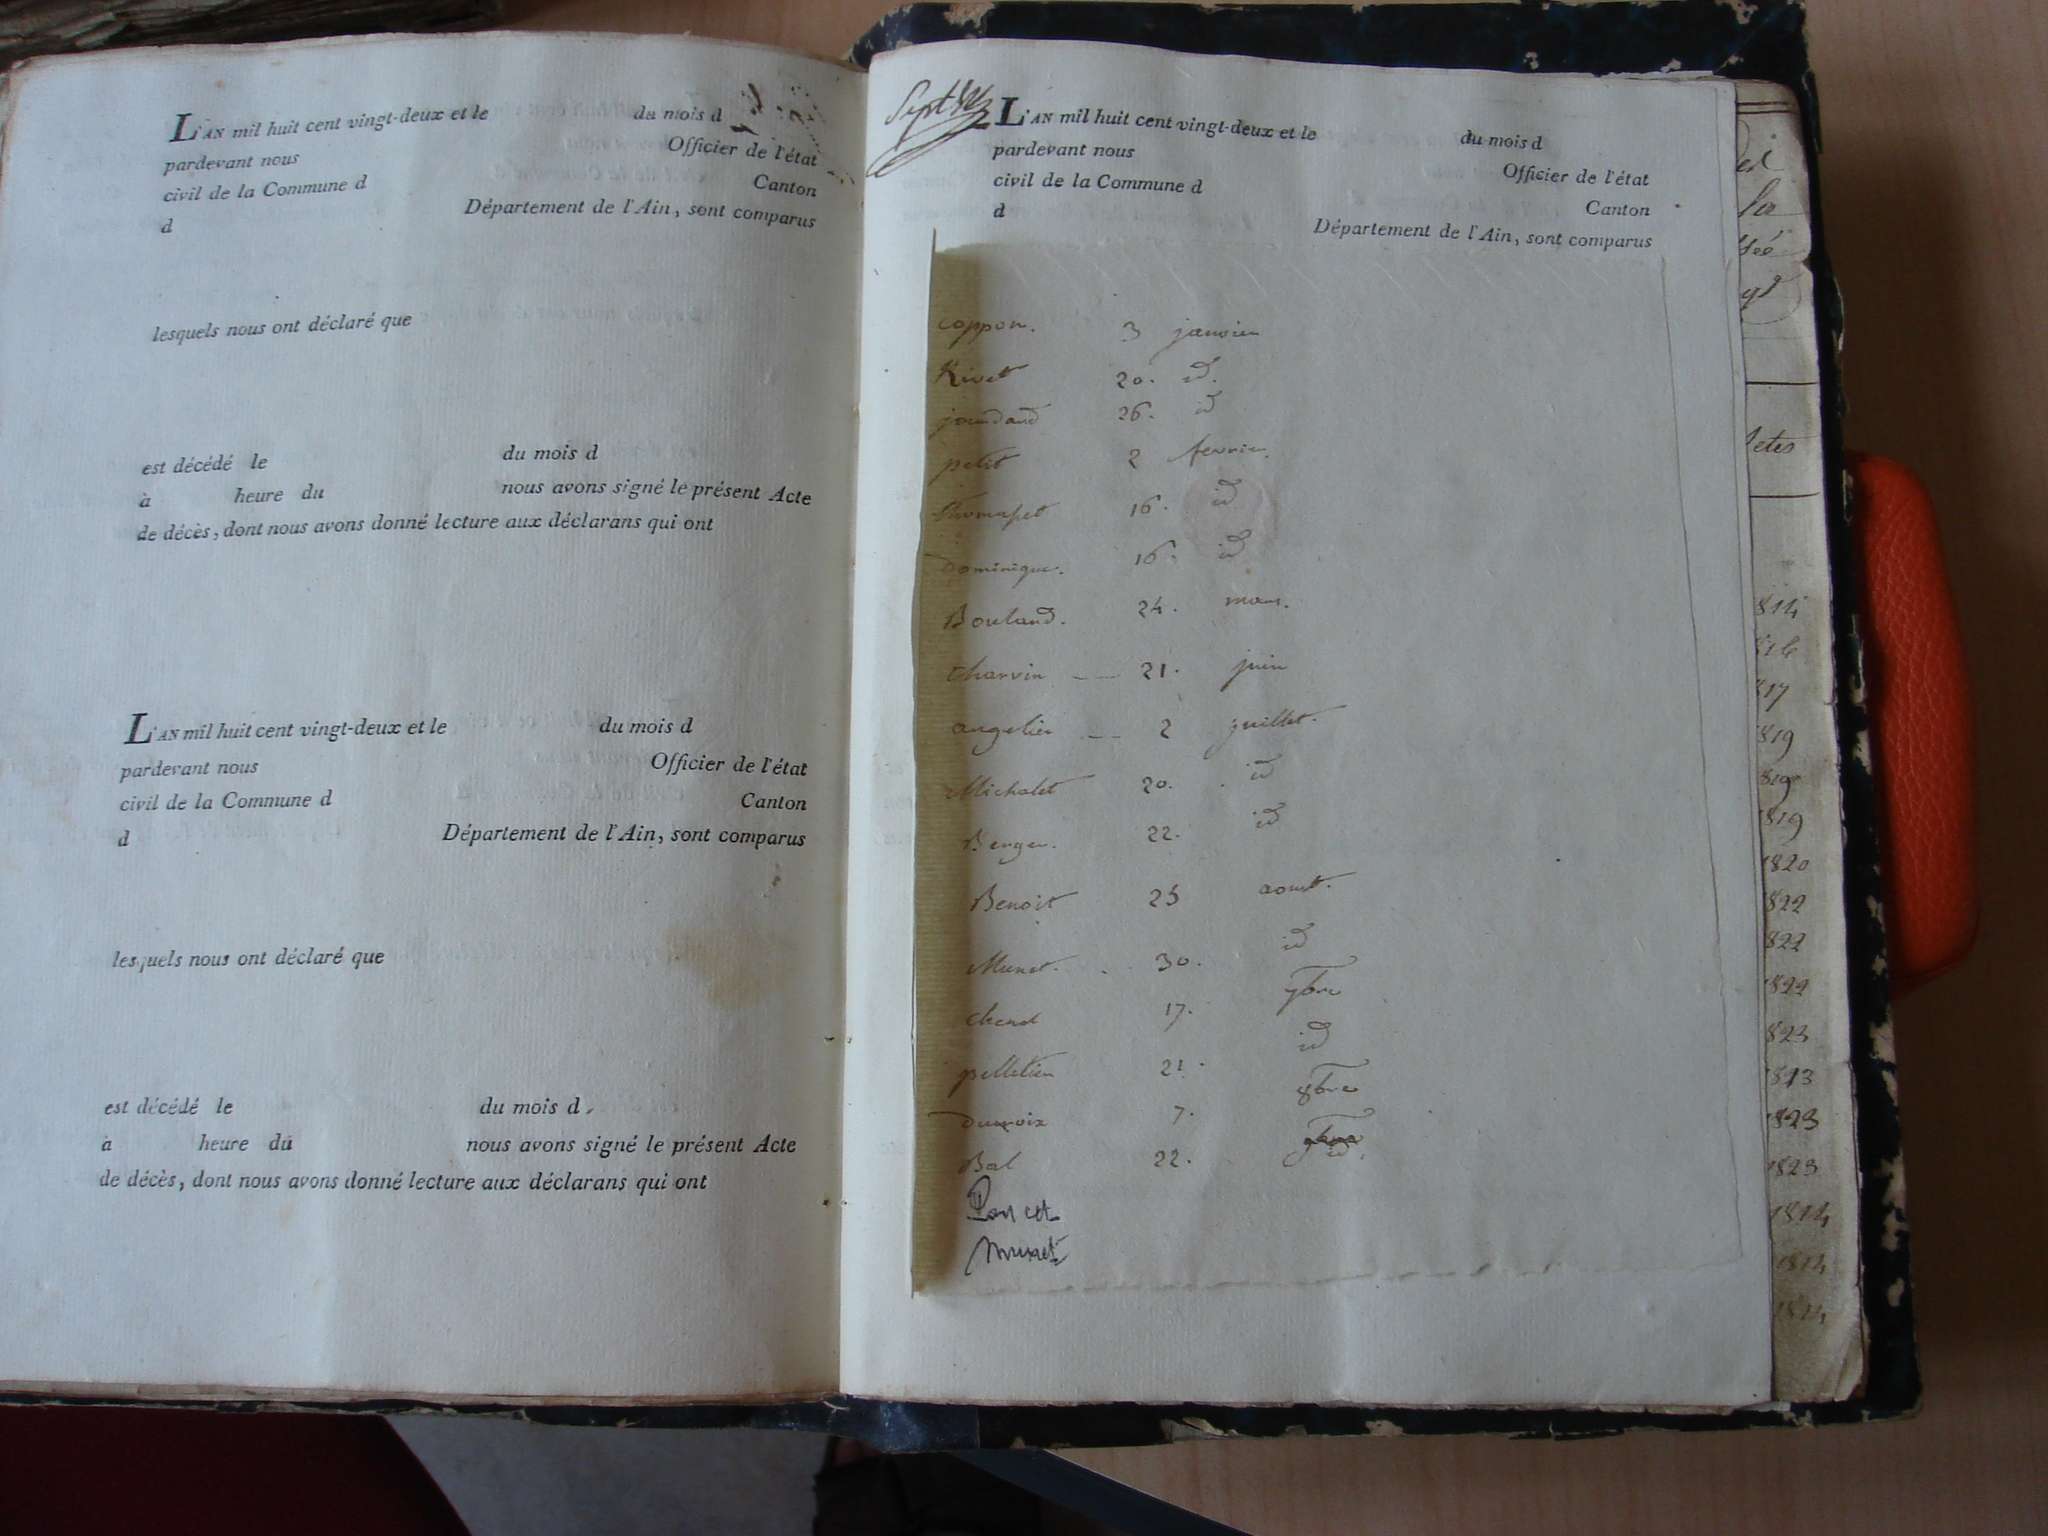 L'AN mil huit cent vingt-deux et le du mois d
pardevant nous Officier de l'état
civil de la Commune d Canton
d Département de l'Ain, sont comparus
lesquels nous ont déclaré que
est décédé le du mois d
à heure du nous avons signé le présent Acte
de décès, dont nous avons donné lecture aux déclarans qui ont
L'AN mil huit cent vingt-deux et le du mois d
pardevant nous Officier de l'état
civil de la Commune d Canton
d Département de l'Ain, sont comparus
lesquels nous ont déclaré que
est décédé le du mois d
à heure du nous avons signé le présent Acte
de décès, dont nous avons donné lecture aux déclarans qui ont
L'AN mil huit cent vingt-deux et le du mois d
pardevant nous Officier de l'état
civil de la Commune d Canton
d Département de l'Ain, sont comparus
coppon. 3 janvier
Rivet 20. id.
jourdand 26. id
petit 2 fevrier.
thomasset 16. id
dominique. 16. id
Bouland. 24. mars.
Charvin 21. juin
angelier 2 juillet.
Michalet 20. id
Berger. 22. id
Benoit 25 aoust.
Munet. 30. id
chenet 17. 7bre
pelletier 21. id
duroix 7. 8bre
Bal 22. id.
Poncet
munet
let
la
gt
Actes
1814
1816
1817
1819
1819
1819
1820
1822
1822
1822
1823
1823
1823
1823
1814
1814
1814